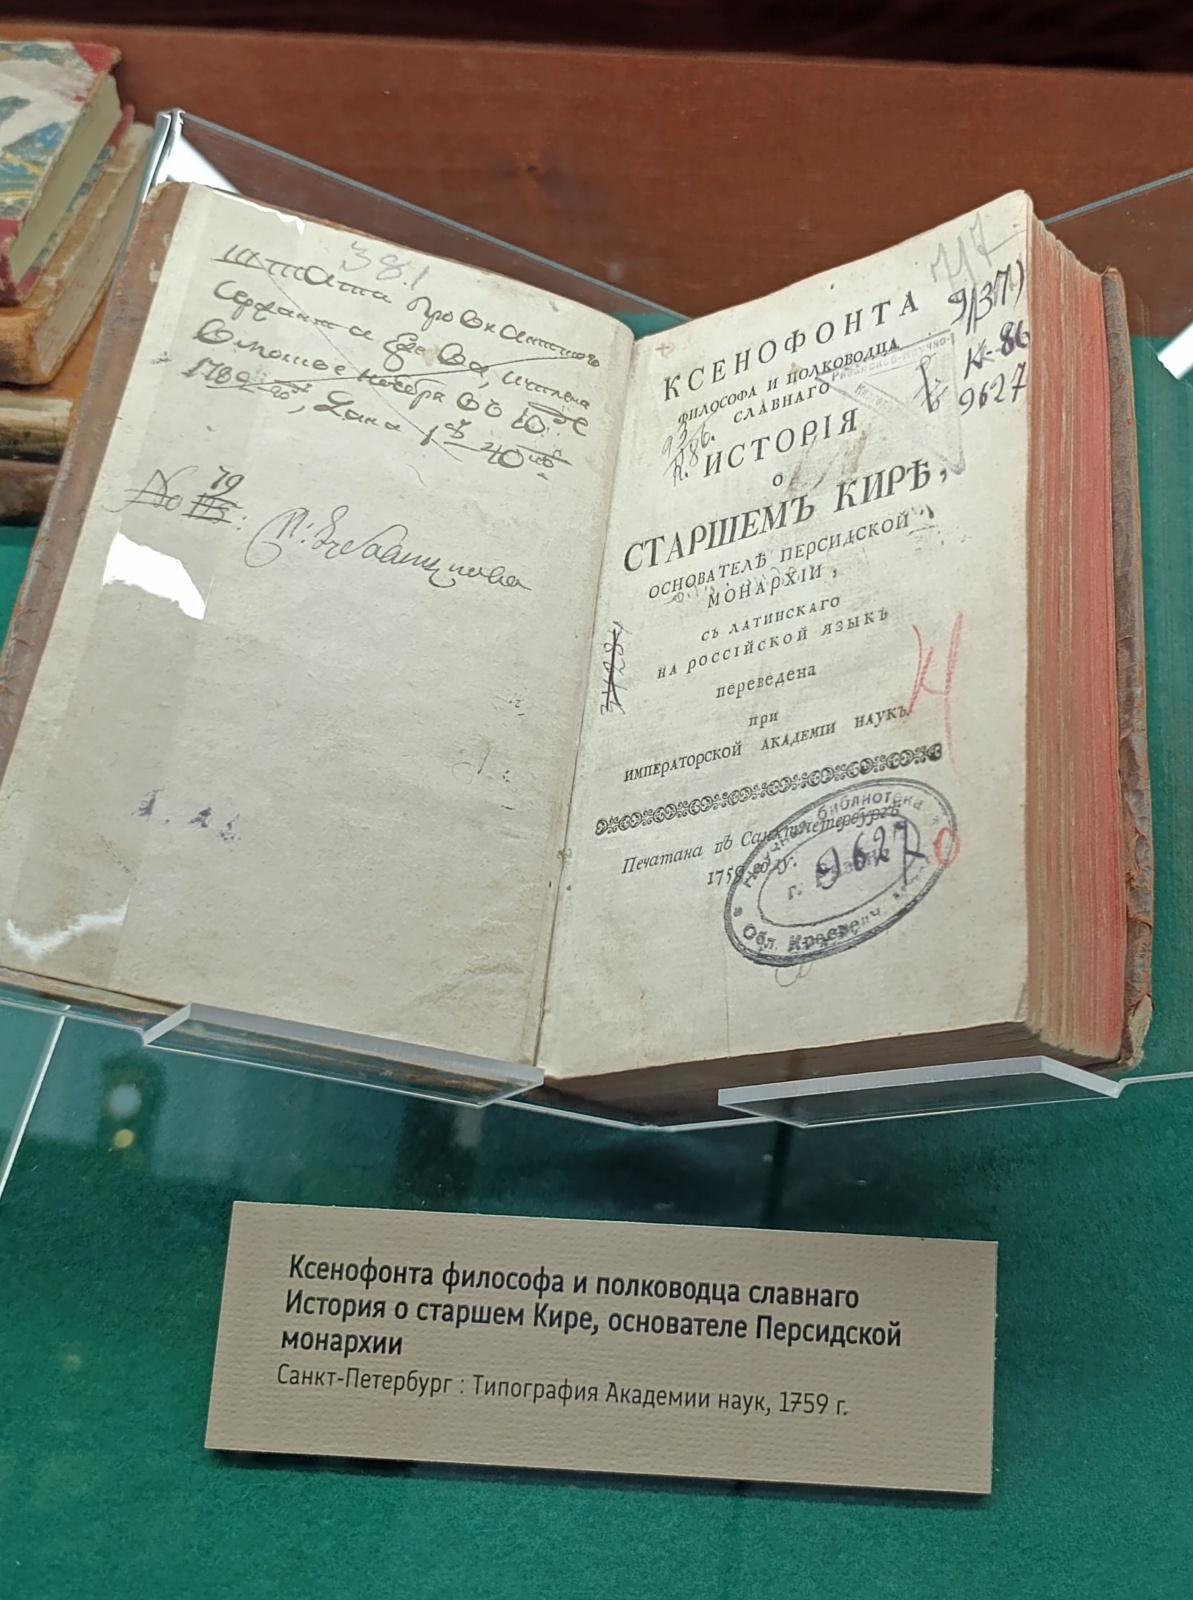 381
штата Провиантскаго
в москве ноября въ 10: де
1789 го, Дана 1 40
No 79
КСЕНОФОНТА
ФИЛОСОФА И ПОЛКОВОДЦА
СЛАВНАГО
ИСТОРІЯ
О
СТАРШЕМЪ КИРѢ,
ОСНОВАТЕЛѢ ПЕРСИДСКОЙ
МОНАРХІИ,
СЪ ЛАТИНСКАГО
НА РОССІЙСКОЙ ЯЗЫКЪ
переведена
при
ИМПЕРАТОРСКОЙ АКАДЕМІИ НАУКЪ
Печатана въ Санктпетербургѣ
1759 году.
9(37)
К-86
9627
93
К86.
3428
библиотека
9627
г. Рязань
Обл. Краевед.
Ксенофонта философа и полководца славнаго
История о старшем Кире, основателе Персидской
монархии
Санкт-Петербург : Типография Академии наук, 1759 г.